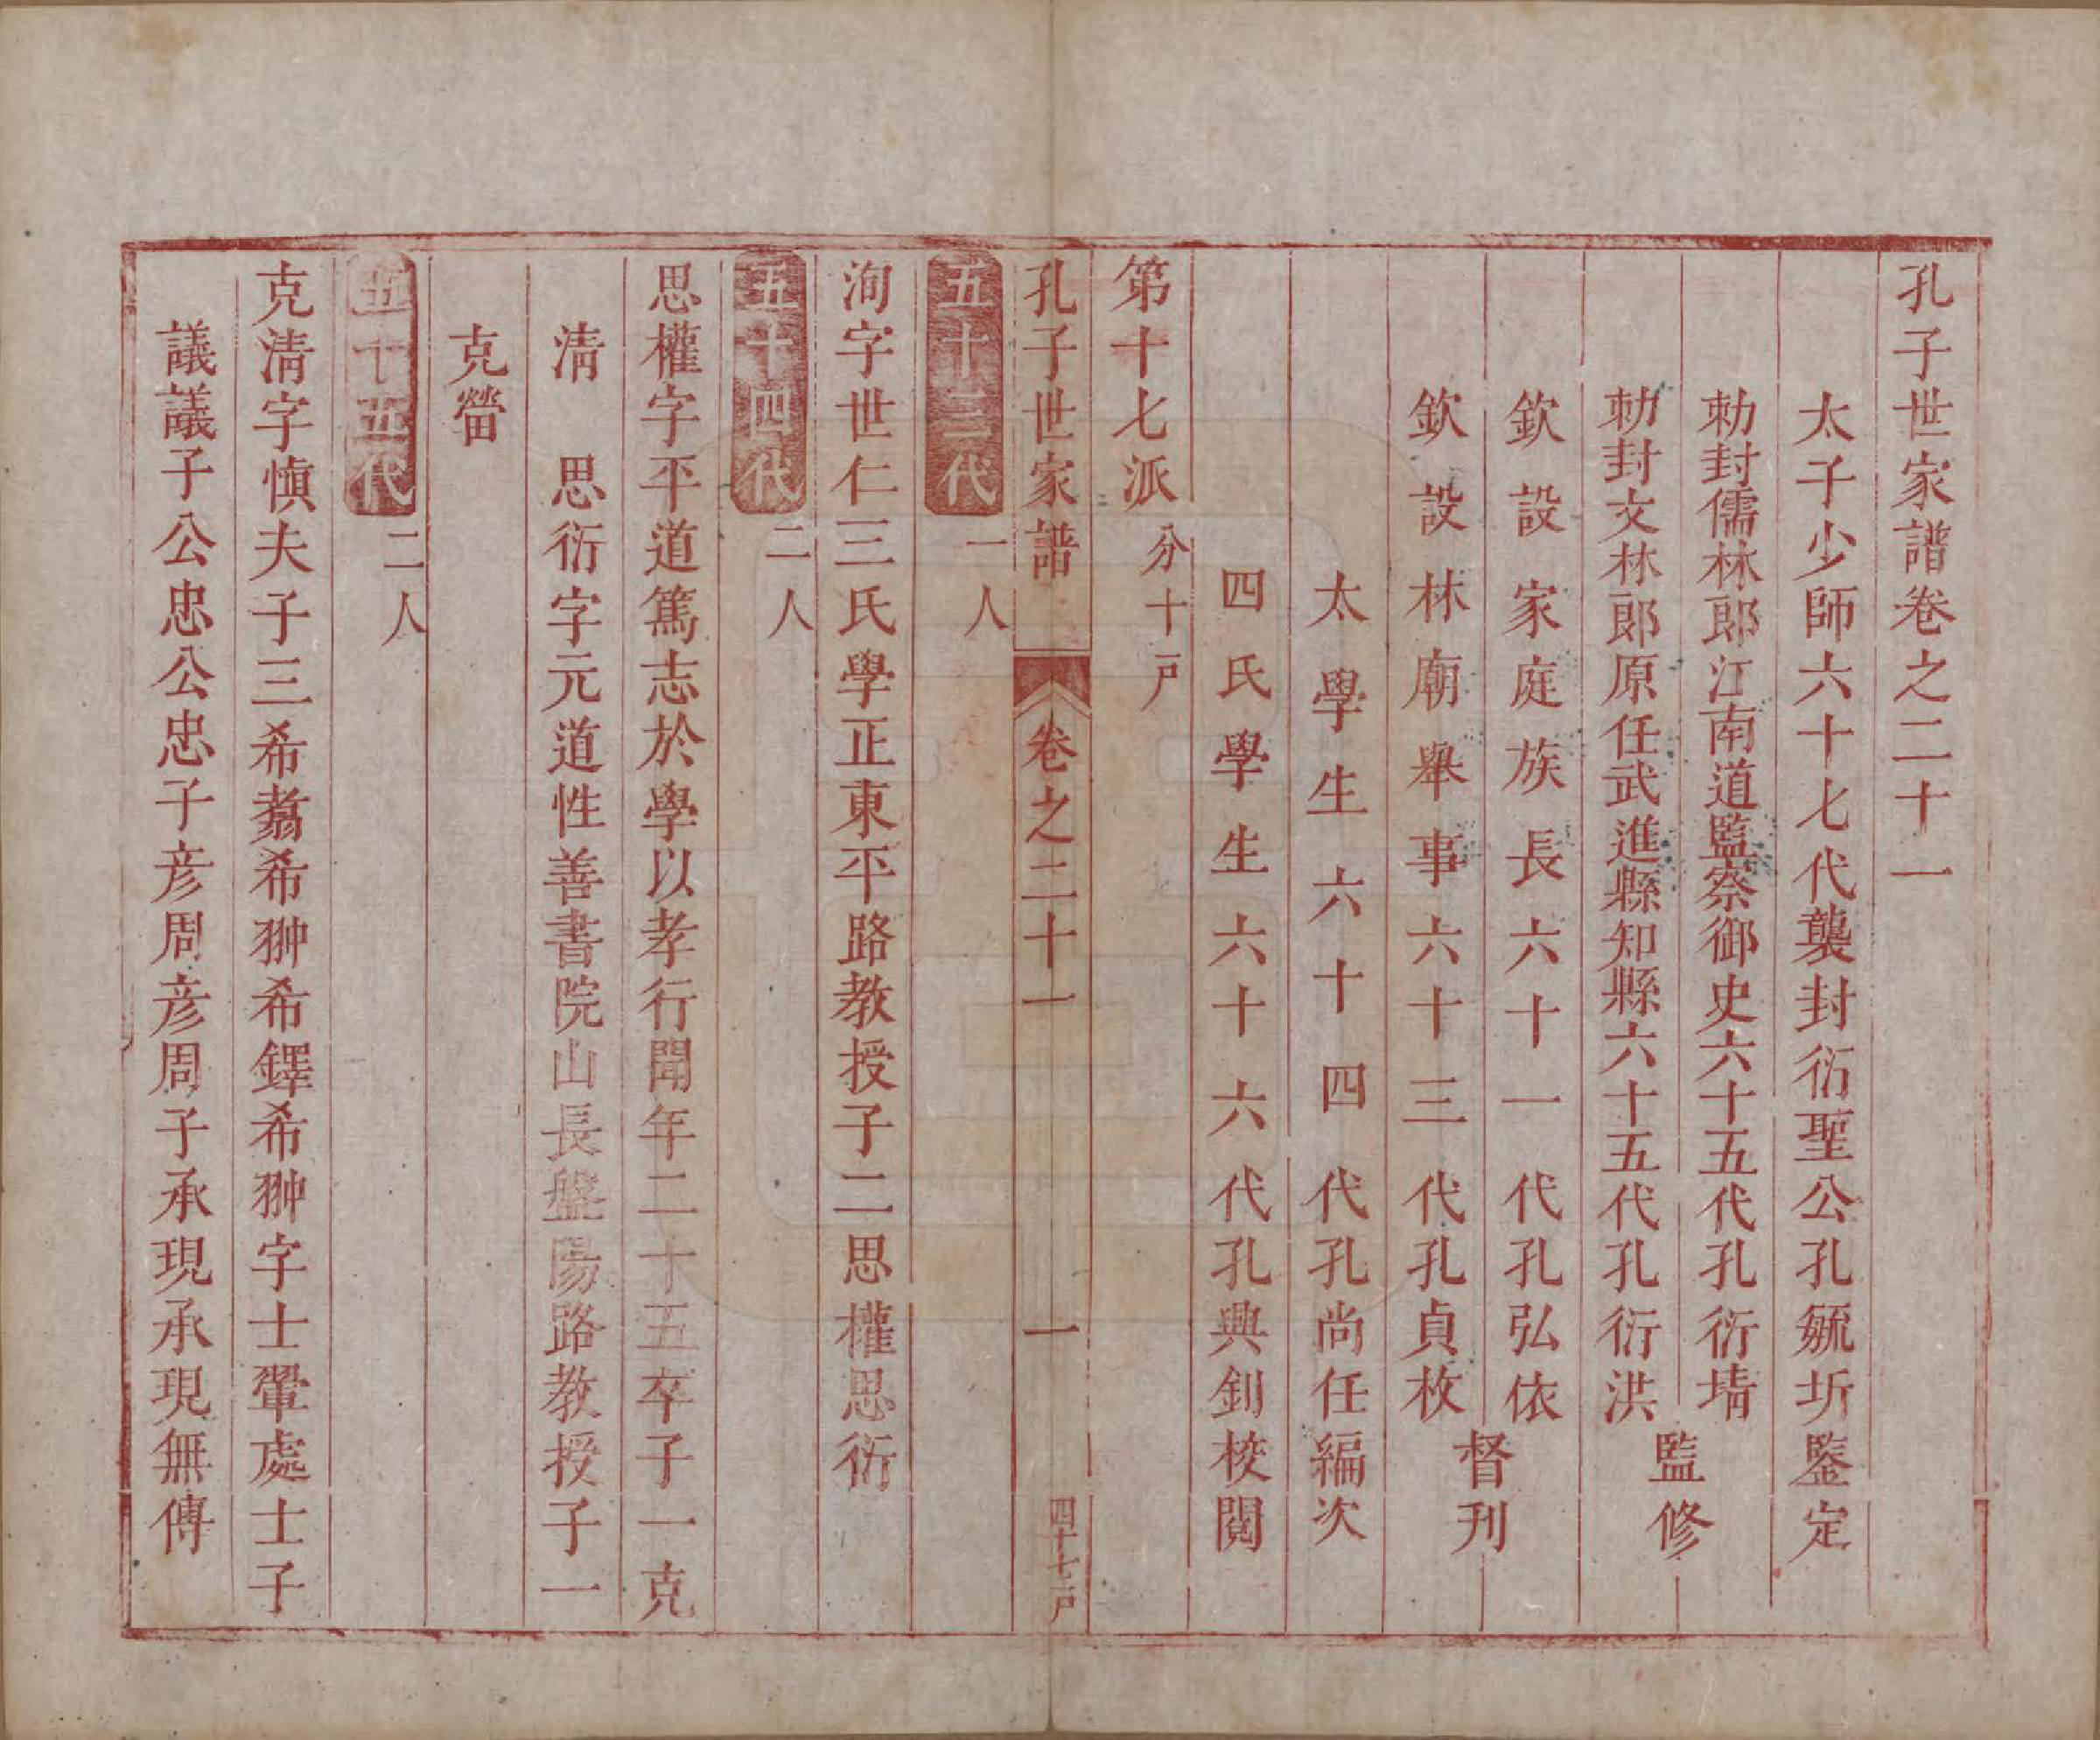 孔子世家譜卷之二十一
太子少師六十七代襲封衍聖公孔毓圻鑒定
勅封儒林郎江南道監察御史六十五代孔衍㙺
勅封文林郎原任武進縣知縣六十五代孔衍洪
監修
欽設家庭族長六十一代孔弘依
欽設林廟舉事六十三代孔貞枚
督刊
太學生六十四代孔尚任編次
四氏學生六十六代孔興釗校閱
第十七派
分十一戶
孔子世家譜
卷之二十一
一
四十七戶
五十三代
一人
洵字世仁三氏學正東平路教授子二思權思衍
五十四代
二人
思權字平道篤志於學以孝行聞年二十五卒子一克
清 思衍字元道性善書院山長盤陽路教授子一
克𤳖
五十五代
二人
克清字愼夫子三希翥希翀希鐸希翀字士翬處士子
議議子公忠公忠子彦周彦周子承現承現無傳